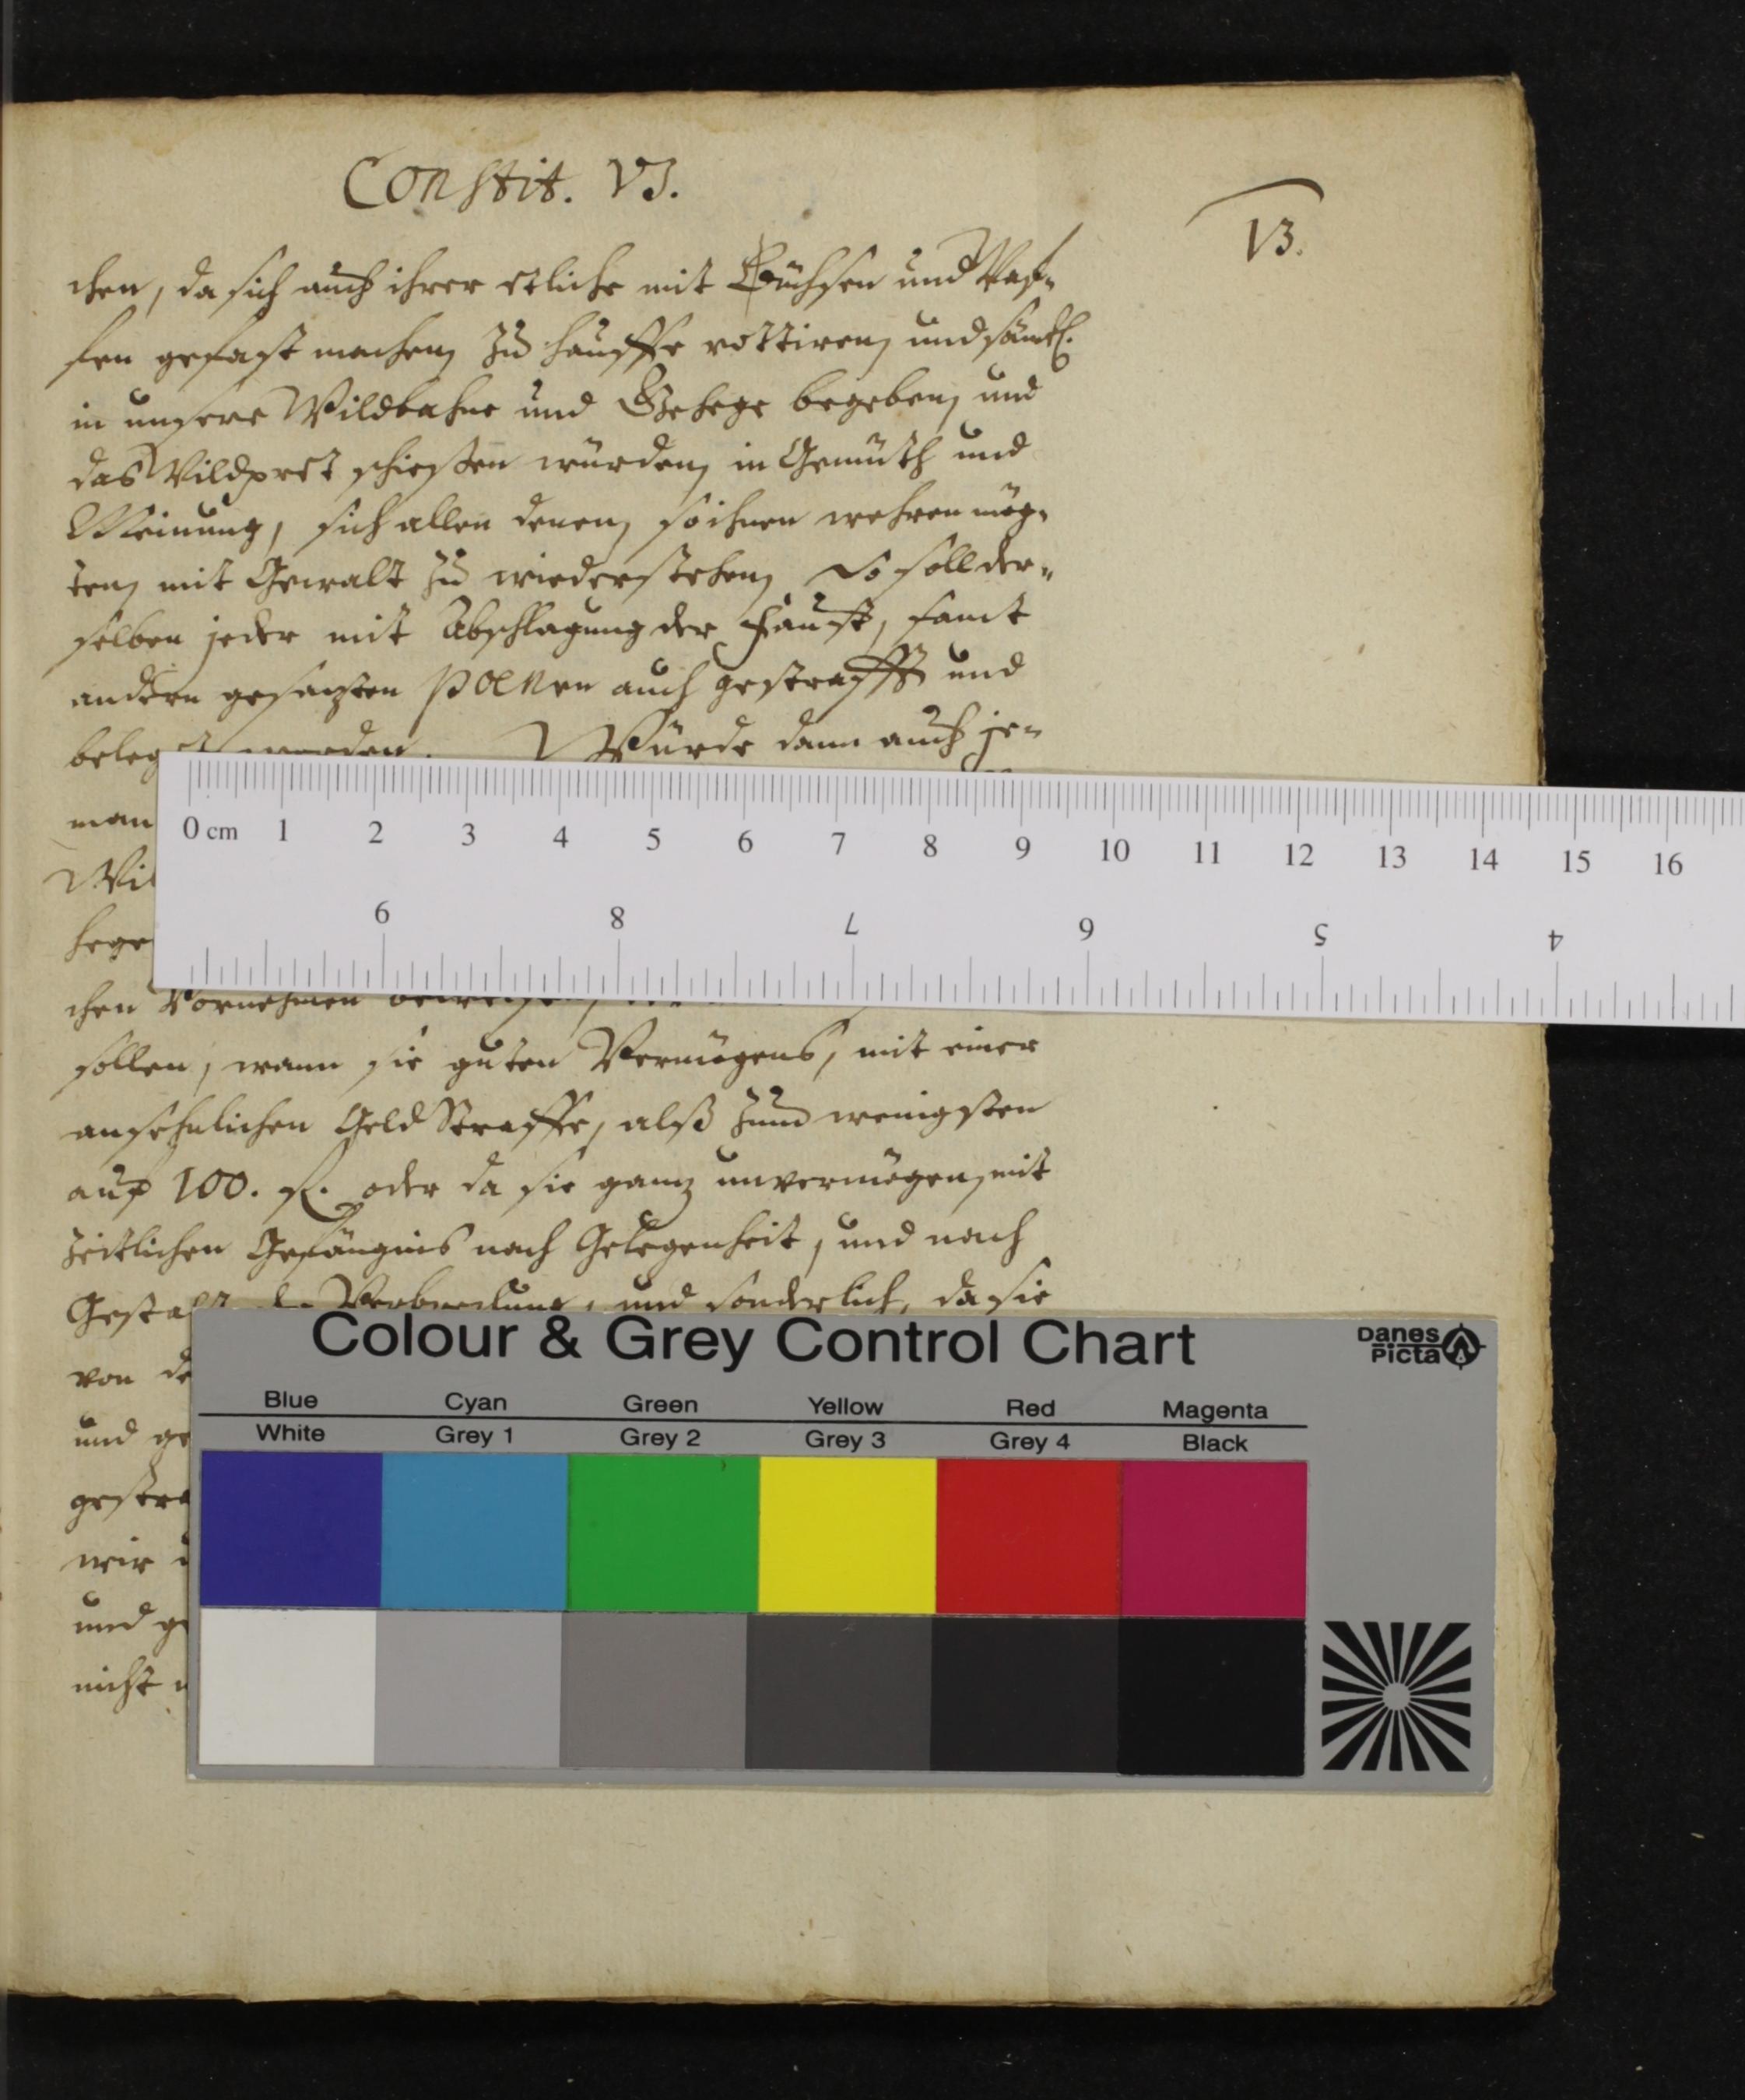 Constit. VI.
13.
chen, da sich auch ihrer etliche mit Büchsen und Waf-
fen gefast machen, zu hauffe rottiren, und sämtl.
in unsere Wildbahne und Gehege begeben, und
das Wildpret schießen würden, in Gemüth und
Meinung, sich allen denen, so ihnen wehren mög-
ten, mit Gewalt zu wiederstehen, So soll der-
selben jeder mit Abschlagung der Faust, samt
andern gesazten Poenen auch gestrafft und
beleget werden. Würde dann auch je-
man
0 cm 1 2 3 4 5 6 7 8 9 10 11 12 13 14 15 16
Wil
9 8 7 6 5 4
hege
chen Vornehmen
sollen, wann sie guten Vermögens, mit einer
ansehnlichen Geld Straffe, alß zum wenigsten
auf 100. fl. oder da sie ganz unvermögen, mit
zeitlichen Gefängnis nach Gelegenheit, und nach
Gestalt der Verbrechung, und sonderlich, da sie
Colour & Grey Control Chart
Danes
Picta
von de
Blue Cyan Green Yellow Red Magenta
und ge
White Grey 1 Grey 2 Grey 3 Grey 4 Black
gestra
wir
und ge
nicht